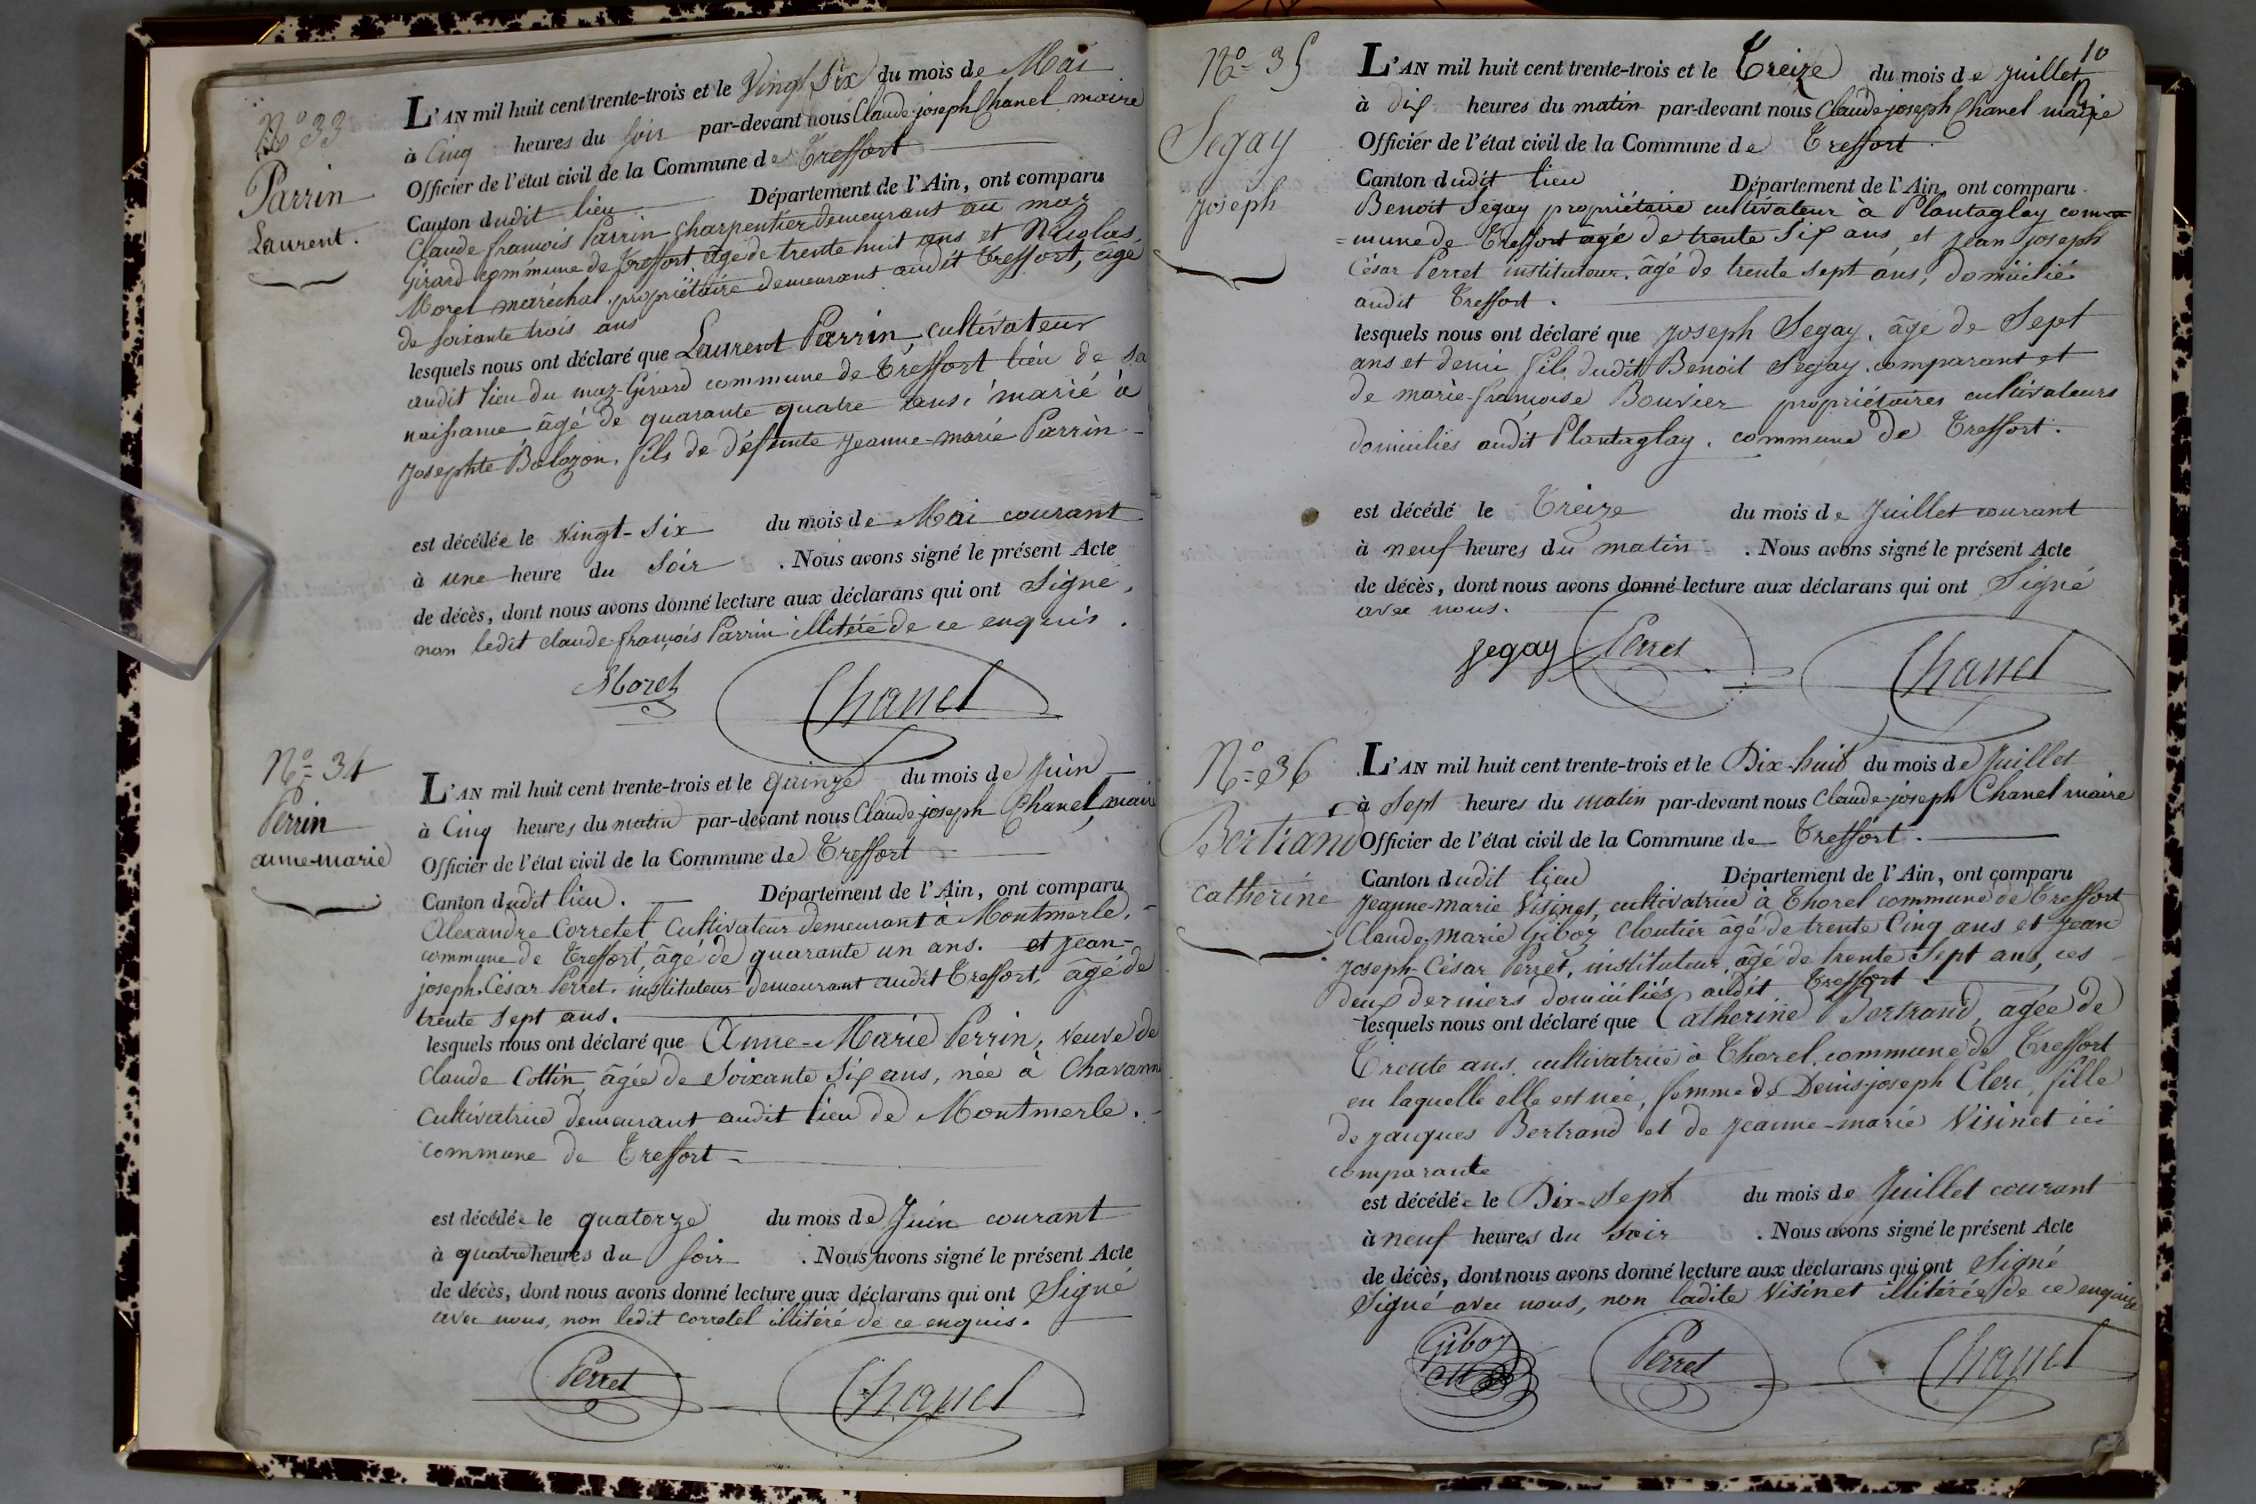 N° 33
Parrin
Laurent.
L'AN mil huit cent trente-trois et le Vingt Six du mois de Mai
à Cinq heures du soir par-devant nous Claude-joseph Chanel maire
Officier de l'état civil de la Commune de Treffort
Canton dudit lieu Département de l'Ain, ont comparu
Claude françois Parrin charpentier demeurant au maz
Girard commune de Treffort âgé de trente huit ans et Nicolas
Morel maréchal propriétaire demeurant audit Treffort, âgé
de soixante trois ans
lesquels nous ont déclaré que Laurent Parrin, cultivateur
audit lieu du maz-Girard commune de Treffort lieu de sa
naissance âgé de quarante quatre ans, marié à
Josephte Balozon, fils de défunte Jeanne-marie Parrin
est décédée le Vingt-Six du mois de Mai courant
à une heure du Soir. Nous avons signé le présent Acte
de décès, dont nous avons donné lecture aux déclarans qui ont Signé,
non ledit claude-françois Parrin illitéré de ce enquis.
Morel Chanel
N° 34
Perrin
anne-marie
L'AN mil huit cent trente-trois et le quinze du mois de Juin
à Cinq heures du matin par-devant nous Claude-joseph Chanel, maire
Officier de l'état civil de la Commune de Treffort
Canton dudit lieu. Département de l'Ain, ont comparu
Alexandre Corretel Cultivateur demeurant à Montmerle,
commune de Treffort, âgé de quarante un ans. et jean-
joseph-César Perret, instituteur demeurant audit Treffort, âgé de
trente Sept ans.
lesquels nous ont déclaré que Anne-Marie Perrin, Veuve de
Claude Cottin, âgée de Soixante Six ans, née à Chavanne
Cultivatrice demeurant audit lieu de Montmerle.
commune de Treffort
est décédée le quatorze du mois de Juin courant
à quatre heures du soir. Nous avons signé le présent Acte
de décès, dont nous avons donné lecture aux déclarans qui ont Signé
avec nous, non ledit corretel illitéré de ce enquis.
Perret Chanel
10
N° 35
Segay
Joseph
L'AN mil huit cent trente-trois et le Treize du mois de Juillet
à dix heures du matin par-devant nous Claude-joseph Chanel maire
Officier de l'état civil de la Commune de Treffort
Canton dudit lieu Département de l'Ain, ont comparu
Benoit Segay propriétaire cultivateur à Plantaglay com-
=mune de Treffort âgé de trente Six ans, et jean joseph
César Perret instituteur, âgé de trente sept ans, domicilié
audit Treffort.
lesquels nous ont déclaré que Joseph Segay, âgé de Sept
ans et demi fils dudit Benoit Segay, comparant et
de marie-françoise Bouvier propriétaires cultivateurs
domiciliés audit Plantaglay, commune de Treffort.
est décédé le Treize du mois de Juillet courant
à neuf heures du matin. Nous avons signé le présent Acte
de décès, dont nous avons donné lecture aux déclarans qui ont Signé
avec nous.
Segay Perret Chanel
N° 36
Bertrand
catherine
L'AN mil huit cent trente-trois et le Dix-huit du mois de Juillet
à Sept heures du matin par-devant nous Claude-joseph Chanel maire
Officier de l'état civil de la Commune de Treffort.
Canton dudit lieu Département de l'Ain, ont comparu
Jeanne-marie Visinet, cultivatrice à Thorel commune de Treffort
Claude-marie Giboz Cloutier âgé de trente Cinq ans et Jean
Joseph-César Perret, instituteur, âgé de trente Sept ans, ces
deux derniers domiciliés audit Treffort.
lesquels nous ont déclaré que Catherine Bertrand, âgée de
Trente ans, cultivatrice à Thorel commune de Treffort
en laquelle elle est née, femme de Denis-joseph Clerc, fille
de jacques Bertrand et de jeanne-marie Visinet ici
comparante
est décédée le Dix-Sept du mois de Juillet courant
à neuf heures du Soir. Nous avons signé le présent Acte
de décès, dont nous avons donné lecture aux déclarans qui ont Signé
Signé avec nous, non ladite Visinet illitérée de ce enquise
Giboz Perret Chanel